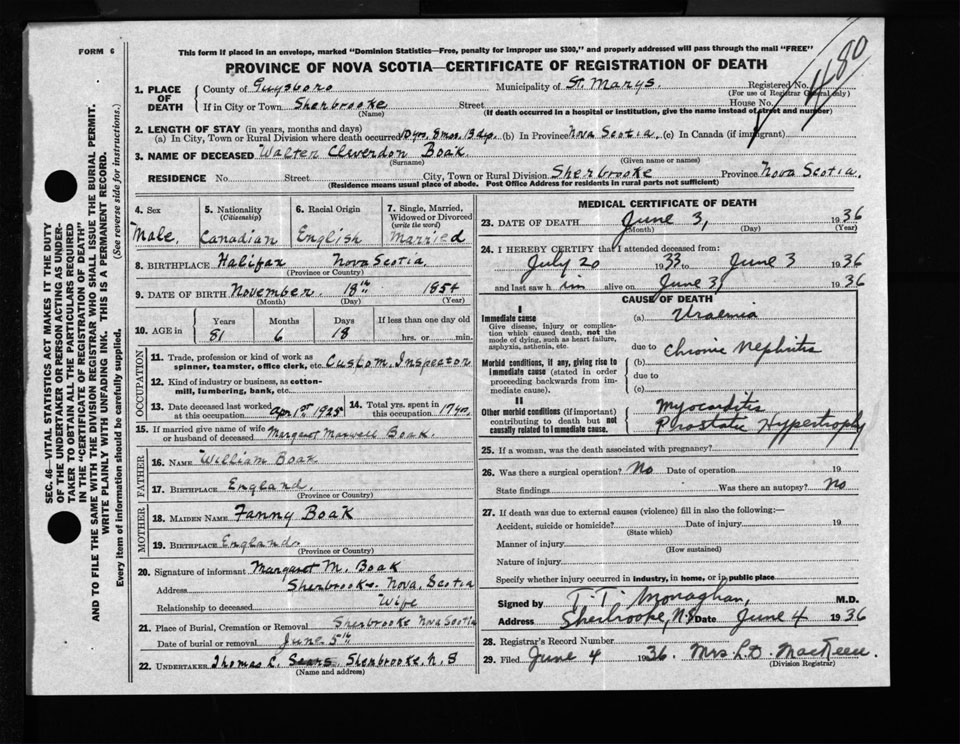 FORM 6
This form if placed in an envelope, marked "Dominion Statistics—Free, penalty for improper use $300," and properly addressed will pass through the mail "FREE"
PROVINCE OF NOVA SCOTIA—CERTIFICATE OF REGISTRATION OF DEATH
1180
SEC. 46—VITAL STATISTICS ACT MAKES IT THE DUTY
OF THE UNDERTAKER OR PERSON ACTING AS UNDER-
TAKER TO OBTAIN ALL THE PARTICULARS REQUIRED
IN THE "CERTIFICATE OF REGISTRATION OF DEATH"
AND TO FILE THE SAME WITH THE DIVISION REGISTRAR WHO SHALL ISSUE THE BURIAL PERMIT.
WRITE PLAINLY WITH UNFADING INK. THIS IS A PERMANENT RECORD.
Every item of information should be carefully supplied. (See reverse side for instructions.)
1. PLACE OF DEATH
County of Guysboro Municipality of St. Marys. Registered No.
(For use of Registrar General only)
If in City or Town Sherbrooke Street House No.
(Name) (If death occurred in a hospital or institution, give the name instead of street and number)
2. LENGTH OF STAY (in years, months and days)
(a) In City, Town or Rural Division where death occurred 10 yrs. 8 mos. 13 dys. (b) In Province Nova Scotia. (c) In Canada (if immigrant)
3. NAME OF DECEASED Walter Cleverdon Boak.
(Surname) (Given name or names)
RESIDENCE No. Street City, Town or Rural Division Sherbrooke Province Nova Scotia.
(Residence means usual place of abode. Post Office Address for residents in rural parts not sufficient)
4. Sex Male.
5. Nationality (Citizenship) Canadian
6. Racial Origin English
7. Single, Married, Widowed or Divorced (write the word) Married
8. BIRTHPLACE Halifax Nova Scotia.
(Province or Country)
9. DATE OF BIRTH November 18th 1854
(Month) (Day) (Year)
10. AGE in Years 81 Months 6 Days 18 If less than one day old hrs. or min.
OCCUPATION
11. Trade, profession or kind of work as
spinner, teamster, office clerk, etc. Custom. Inspector
12. Kind of industry or business, as cotton-
mill, lumbering, bank, etc.
13. Date deceased last worked
at this occupation Apr 1st 1925
14. Total yrs. spent in
this occupation 17 yrs.
15. If married give name of wife
or husband of deceased Margaret Maxwell Boak.
FATHER
16. NAME William Boak
17. BIRTHPLACE England.
(Province or Country)
MOTHER
18. MAIDEN NAME Fanny Boak
19. BIRTHPLACE England
(Province or Country)
20. Signature of informant Margaret M. Boak
Address Sherbrooke. Nova. Scotia
Relationship to deceased Wife
21. Place of Burial, Cremation or Removal Sherbrooke Nva Scotia
Date of burial or removal June 5th
22. UNDERTAKER Thomas L. Sears Sherbrooke, N. S
(Name and address)
MEDICAL CERTIFICATE OF DEATH
23. DATE OF DEATH June 3, 1936
(Month) (Day) (Year)
24. I HEREBY CERTIFY that I attended deceased from:
July 20 1933 to June 3 1936
and last saw h im alive on June 3, 1936
CAUSE OF DEATH
I
Immediate cause
Give disease, injury or complica-
tion which caused death, not the
mode of dying, such as heart failure,
asphyxia, asthenia, etc.
(a) Uraemia
due to Chronic Nephritis
Morbid conditions, if any, giving rise to
immediate cause (stated in order
proceeding backwards from im-
mediate cause).
(b)
due to
(c)
II
Other morbid conditions (if important)
contributing to death but not
causally related to immediate cause.
Myocarditis
Prostatic Hypertrophy
25. If a woman, was the death associated with pregnancy?
26. Was there a surgical operation? No Date of operation 19
State findings Was there an autopsy? No
27. If death was due to external causes (violence) fill in also the following:—
Accident, suicide or homicide? Date of injury 19
(State which)
Manner of injury
(How sustained)
Nature of injury
Specify whether injury occurred in industry, in home, or in public place
Signed by T. T. Monaghan, M.D.
Address Sherbrooke, N.S Date June 4 1936
28. Registrar's Record Number
29. Filed June 4 1936. Mrs L. D. MacKeen
(Division Registrar)